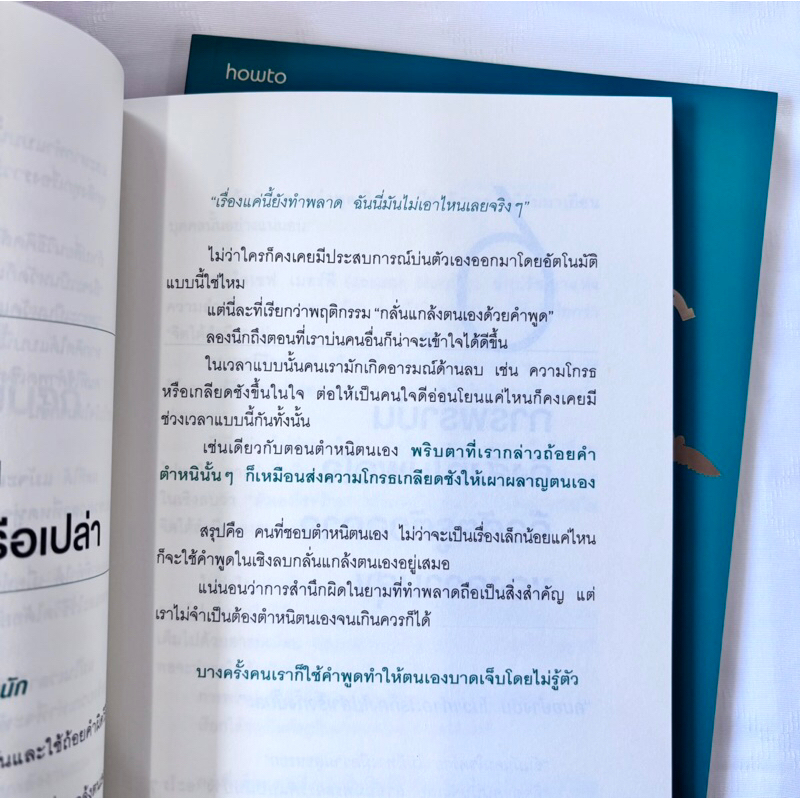 howto
"เรื่องแค่นี้ยังทำพลาด ฉันนี่มันไม่เอาไหนเลยจริง ๆ"
ไม่ว่าใครก็คงเคยมีประสบการณ์บ่นตัวเองออกมาโดยอัตโนมัติ
แบบนี้ใช่ไหม
แต่นี่ละที่เรียกว่าพฤติกรรม "กลั่นแกล้งตนเองด้วยคำพูด"
ลองนึกถึงตอนที่เราบ่นคนอื่นก็น่าจะเข้าใจได้ดีขึ้น
ในเวลาแบบนั้นคนเรามักเกิดอารมณ์ด้านลบ เช่น ความโกรธ
หรือเกลียดชังขึ้นในใจ ต่อให้เป็นคนใจดีอ่อนโยนแค่ไหนก็คงเคยมี
ช่วงเวลาแบบนี้กันทั้งนั้น
เช่นเดียวกับตอนตำหนิตนเอง พริบตาที่เรากล่าวถ้อยคำ
ตำหนินั้น ๆ ก็เหมือนส่งความโกรธเกลียดชังให้เผาผลาญตนเอง
สรุปคือ คนที่ชอบตำหนิตนเอง ไม่ว่าจะเป็นเรื่องเล็กน้อยแค่ไหน
ก็จะใช้คำพูดในเชิงลบกลั่นแกล้งตนเองอยู่เสมอ
แน่นอนว่าการสำนึกผิดในยามที่ทำพลาดถือเป็นสิ่งสำคัญ แต่
เราไม่จำเป็นต้องตำหนิตนเองจนเกินควรก็ได้
บางครั้งคนเราก็ใช้คำพูดทำให้ตนเองบาดเจ็บโดยไม่รู้ตัว
รือเปล่า
นัก